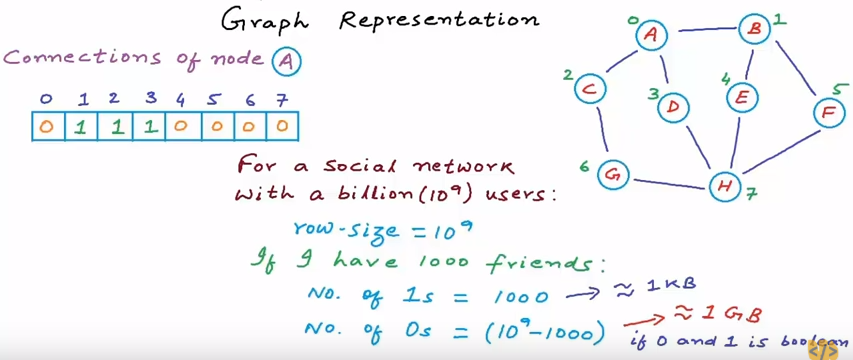 Graph Representation
Connections of node A
0 1 2 3 4 5 6 7
0 1 1 1 0 0 0 0
0 A
B 1
2 C
3 D
4 E
5 F
6 G
H 7
For a social network
with a billion (10⁹) users:
row-size = 10⁹
If I have 1000 friends:
No. of 1s = 1000 → ≈ 1 KB
No. of 0s = (10⁹-1000) → ≈ 1 GB
if 0 and 1 is boolean
</>